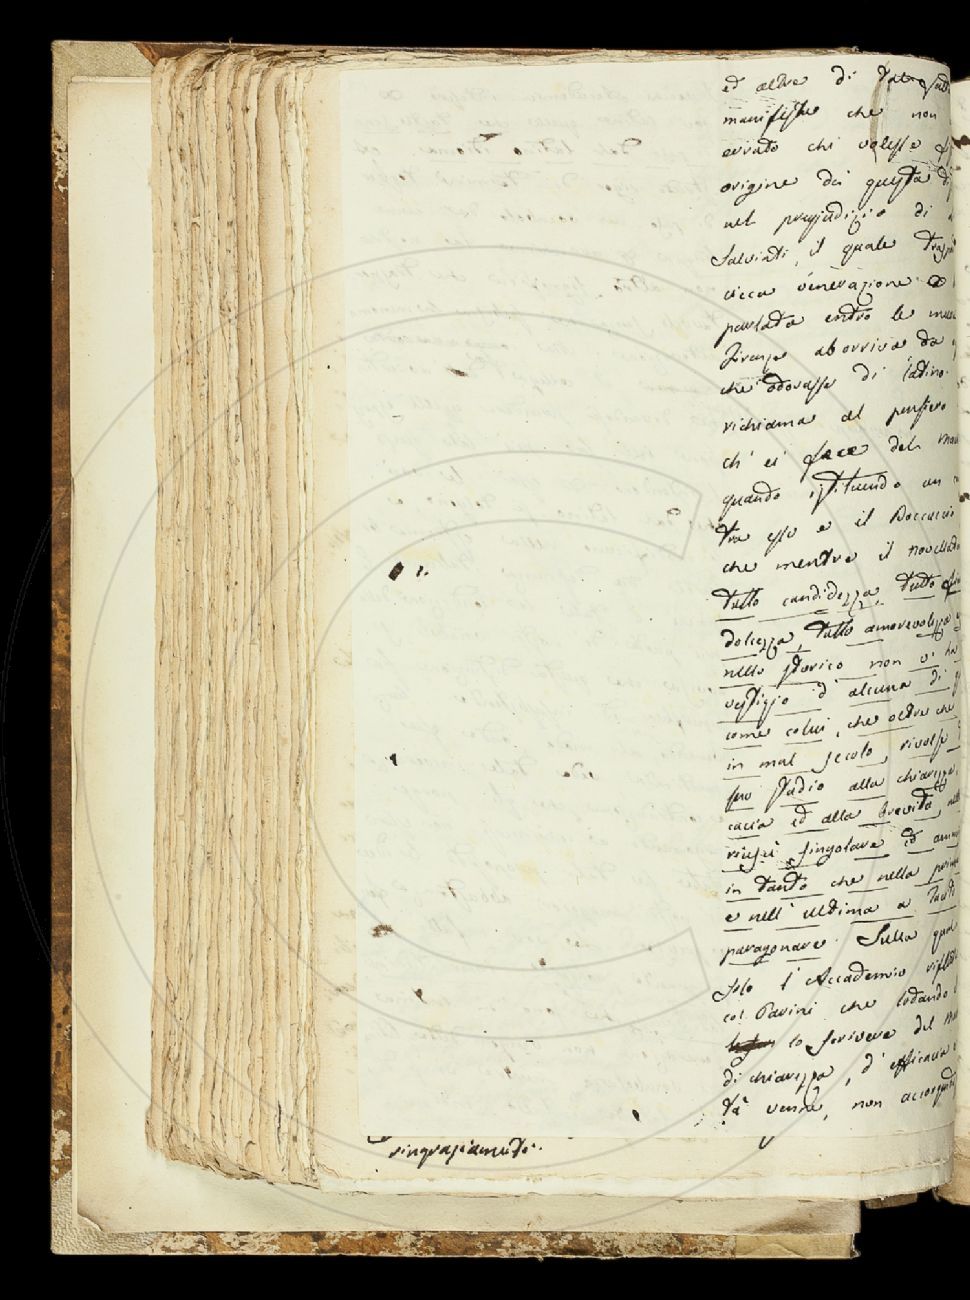 ed altre di tal
manifeste che non
ovviato chi volesse
origine di questa
nel pregiudizio di
Salviati, il quale
cieca venerazione
parlata entro le mura
Firenze aborriva da
che odorasse di latino.
richiama al pensiero
ch' ei fece del
quando istituendo un
tra esso e il Boccaccio
che mentre il novellato
tutto candidezza, tutto
dolcezza, tutto amorevolezza
nello storico non v' ha
vestigio d' alcuna di
come colui, che oltre che
in mal secolo, rivolse
suo studio alla chiarezza,
cacia ed alla brevità,
riuscì singolare ed
in tanto che nella
e nell' ultima a Tacito
paragonare. Sulla qual
solo l' Accademio
col Parini che lodando
lo scrivere del
di chiarezza, d' efficacia
tà venne, non
1.
ringraziamenti.